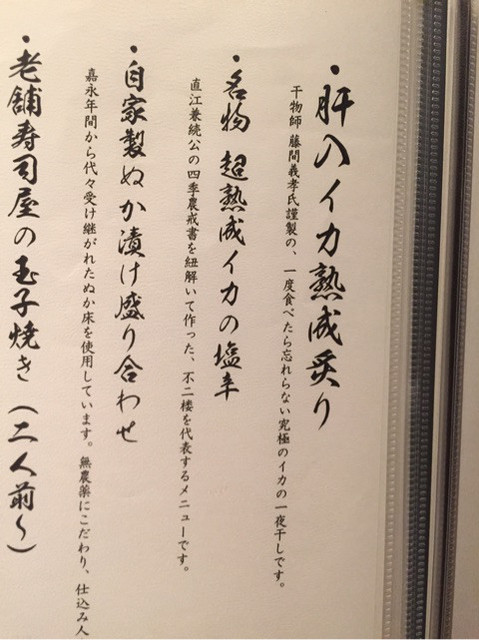 ・肝入イカ熟成炙り
干物師 藤間義孝氏謹製の、一度食べたら忘れらない究極のイカの一夜干しです。
・名物 超熟成イカの塩辛
直江兼続公の四季農戒書を紐解いて作った、不二楼を代表するメニューです。
・自家製ぬか漬け盛り合わせ
嘉永年間から代々受け継がれたぬか床を使用しています。無農薬にこだわり、仕込み人
・老舗寿司屋の玉子焼き（二人前～）